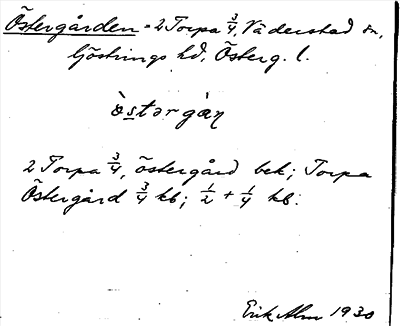 Östergården = 2 Torpa 3/4, Väderstad sn,
Göstrings hd, Österg. l.
òstərgàn̥
2 Torpa 3/4, Östergård bek; Torpa
Östergård 3/4 kb; 1/2 + 1/4 kb.
Erik Alm 1930